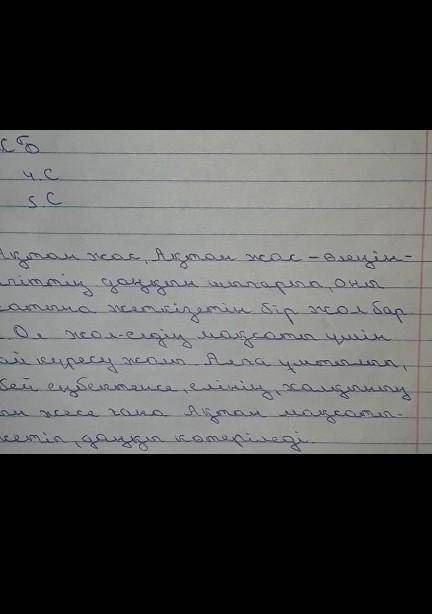 4. С
5. С
Ақтан жас, Ақтан жас – өлеңін-
гіттің даңқын шығарып, оны
сатына жеткізетін бір жол бар
. Ол жол-елдің мақсаты үшін
ай күресу жолы. Алға ұмтылып,
бей еңбектенсе, елінің, халқының
ын жесе ғана Ақтан мақсаты-
жетіп, даңқы көтеріледі.